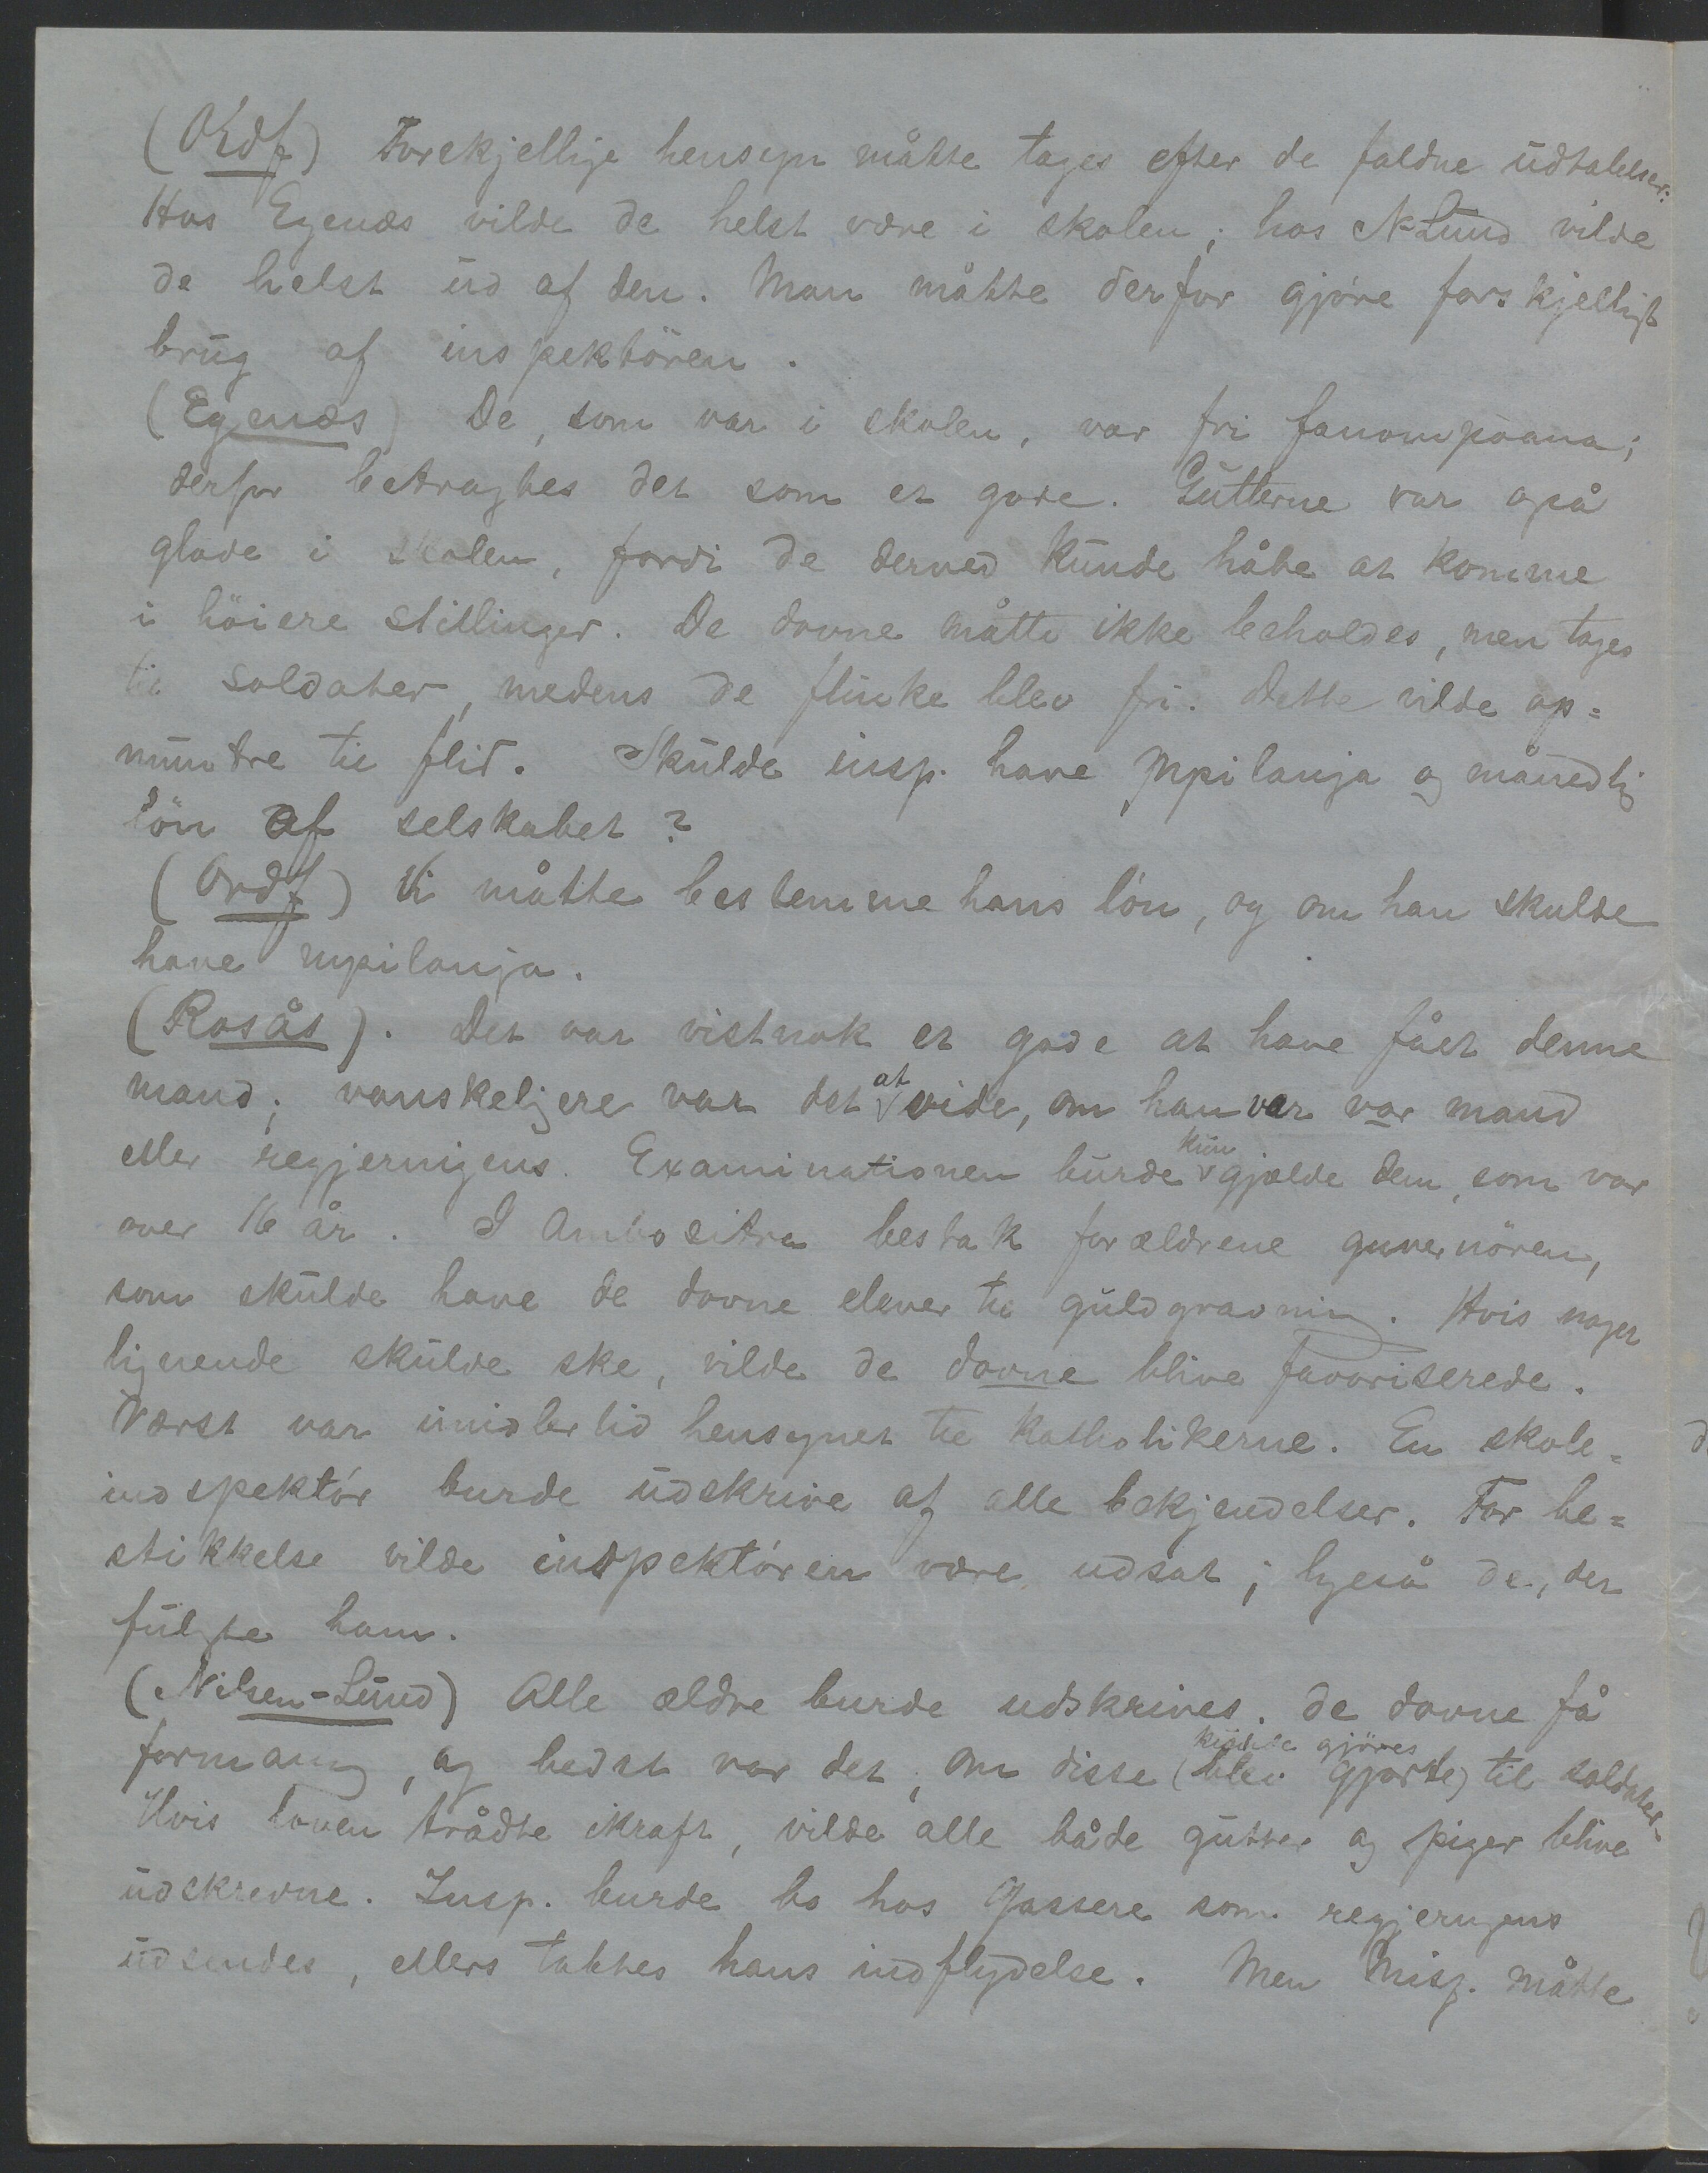 (Ordf) Forskjellige hensyn måtte tages efter de faldne udtalelser:
Hos Egenæs vilde de helst være i skolen; hos N-Lund vilde
de helst ud af den. Man måtte derfor gjöre forskjelligt
brug af inspektören.
(Egenæs) De, som var i skolen, var fri fanompoana;
derfor betragtes det som et gode. Gutterne var også
glade i skolen, fordi de derved kunde håbe at komme
i höiere stillinger. De dovne måtte ikke beholdes, men tages
til soldater, medens de flinke blev fri. Dette vilde op=
muntre til flid. Skulde insp. have mpilanja og månedlig
lön af selskabet?
(Ordf) Vi måtte bestemme hans lön, og om han skulde
have mpilanja.
(Rosås). Det var vistnok et gode at have fået denne
mand; vanskeligere var det at vide, om han var vor mand
eller regjeringens. Examinationen burde kun gjælde dem, som var
over 16 år. I Ambositra bestak forældrene guvernören,
som skulde have de dovne elever til guldgravning. Hvis noget
lignende skulde ske, vilde de dovne blive favoriserede.
Værst var imidlertid hensynet til katholikerne. En skole=
indspektör burde udskrive af alle bekjendelser. For be=
stikkelse vilde inspektören være udsat; ligeså de, der
fulgte ham.
(Nilsen-Lund) Alle ældre burde udskrives. de dovne få
formaning, og bedst var det, om disse (blev gjorte) kunde gjöres til soldater.
Hvis loven trådte ikraft, vilde alle både gutter og piger blive
udskrevne. Insp. burde bo hos Gassere som regjeringens
udsendes, ellers tabtes hans indflydelse. Men Misp. måtte